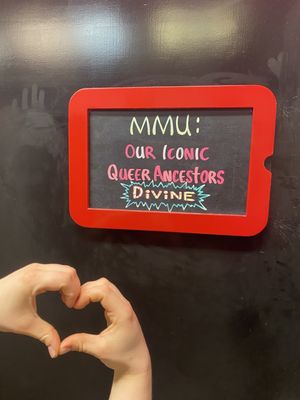 MMU:
OUR ICONIC
QUEER ANCESTORS
DIVINE